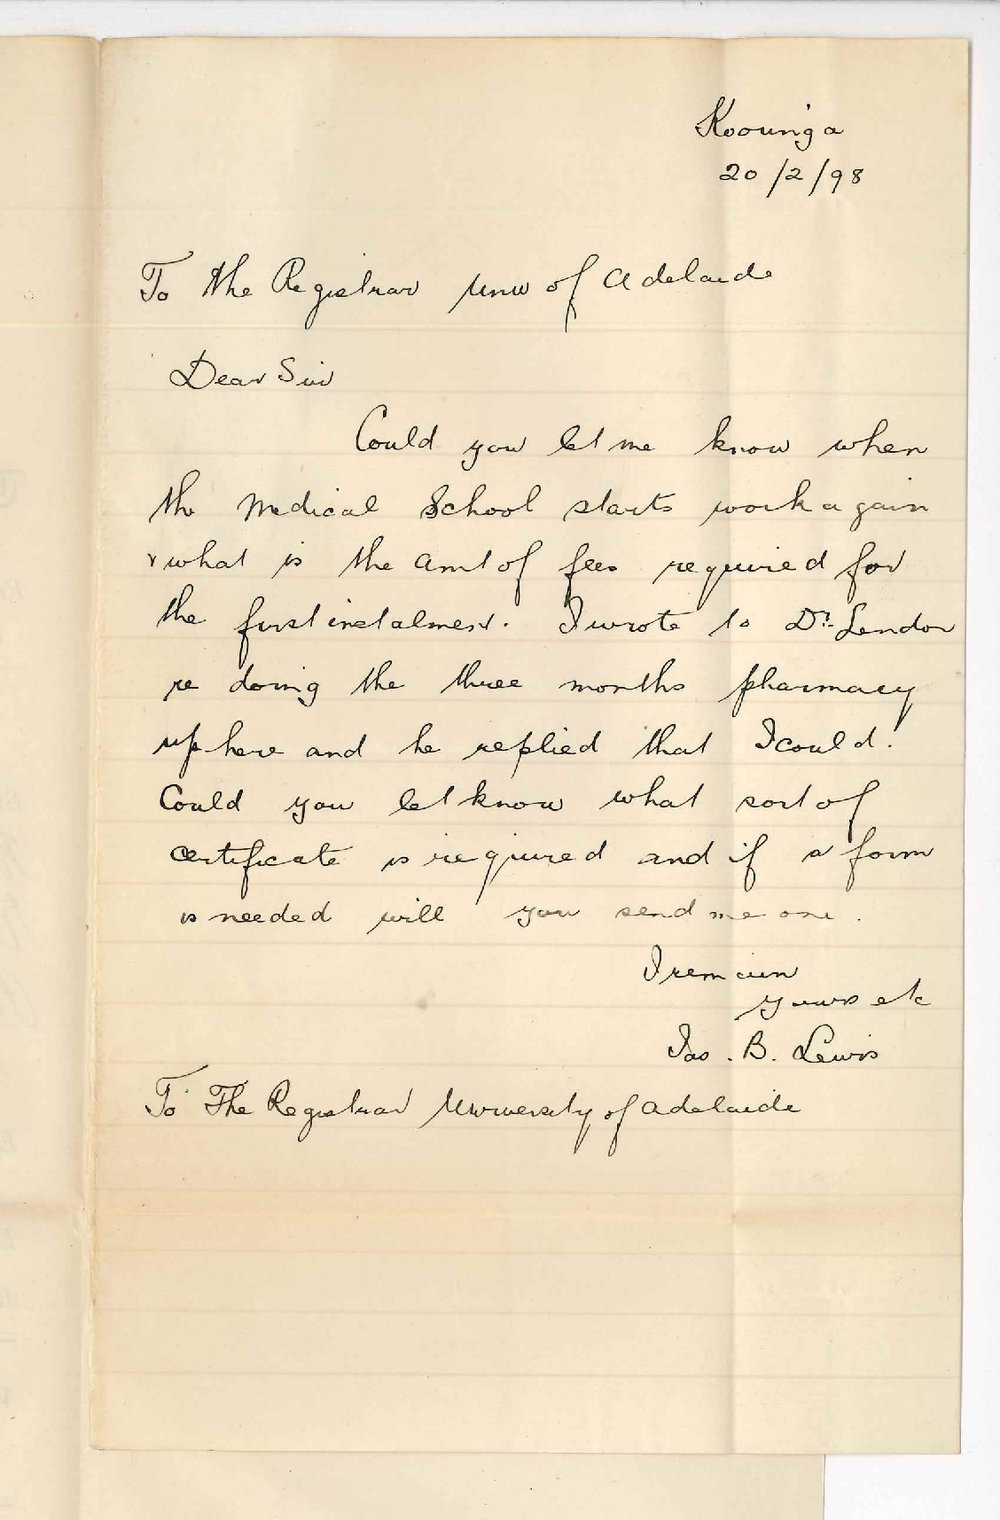 Kooringa
20/2/98
To the Registrar Univ of Adelaide
Dear Sir
Could you let me know when
the Medical School starts work again
& what is the amt of fees required for
the first instalment. I wrote to Dr. Lendon
re doing the three months pharmacy
up here and he replied that I could.
Could you let know what sort of
certificate is required and if a form
is needed will you send me one.
I remain
yours etc
Jas. B. Lewis
To The Registrar University of Adelaide